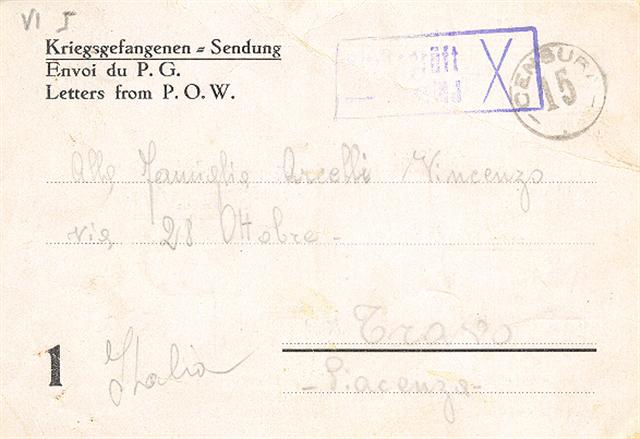 VI I
Kriegsgefangenen = Sendung
Envoi du P. G.
Letters from P. O. W.
X
CENSURA
15
Alla famiglia Arcelli Vincenzo
via 28 Ottobre -
Travo
1 Italia
- Piacenza -